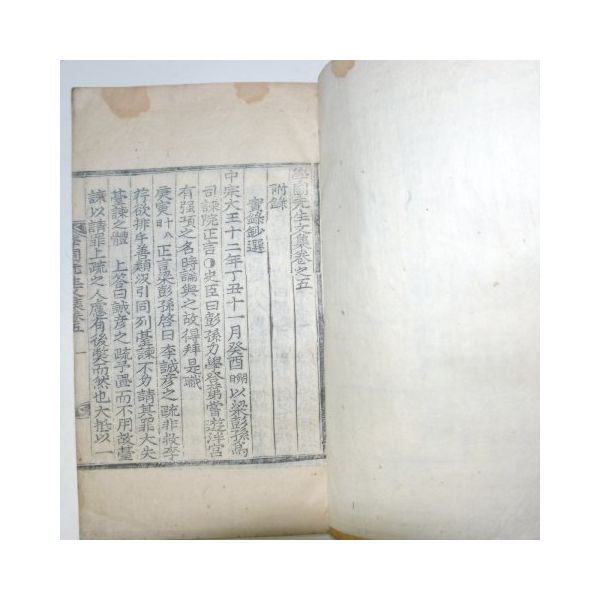 學圃先生文集卷之五
附錄
實錄鈔選
中宗大王十二年丁丑十一月癸酉朔以梁彭孫爲
司諫院正言史臣曰彭孫力學登第嘗遊泮宮
有强項之名時論與之故得拜是職
庚寅十八日正言梁彭孫啓曰李誠彦之疏非救李
荇欲排斥善類汲引同列臺諫不力請其罪大失
臺諫之體 上答曰誠彦之疏予置而不用故臺
諫以請罪上疏之人慮有後弊而然也大抵以一
學圃先生文集卷五 一